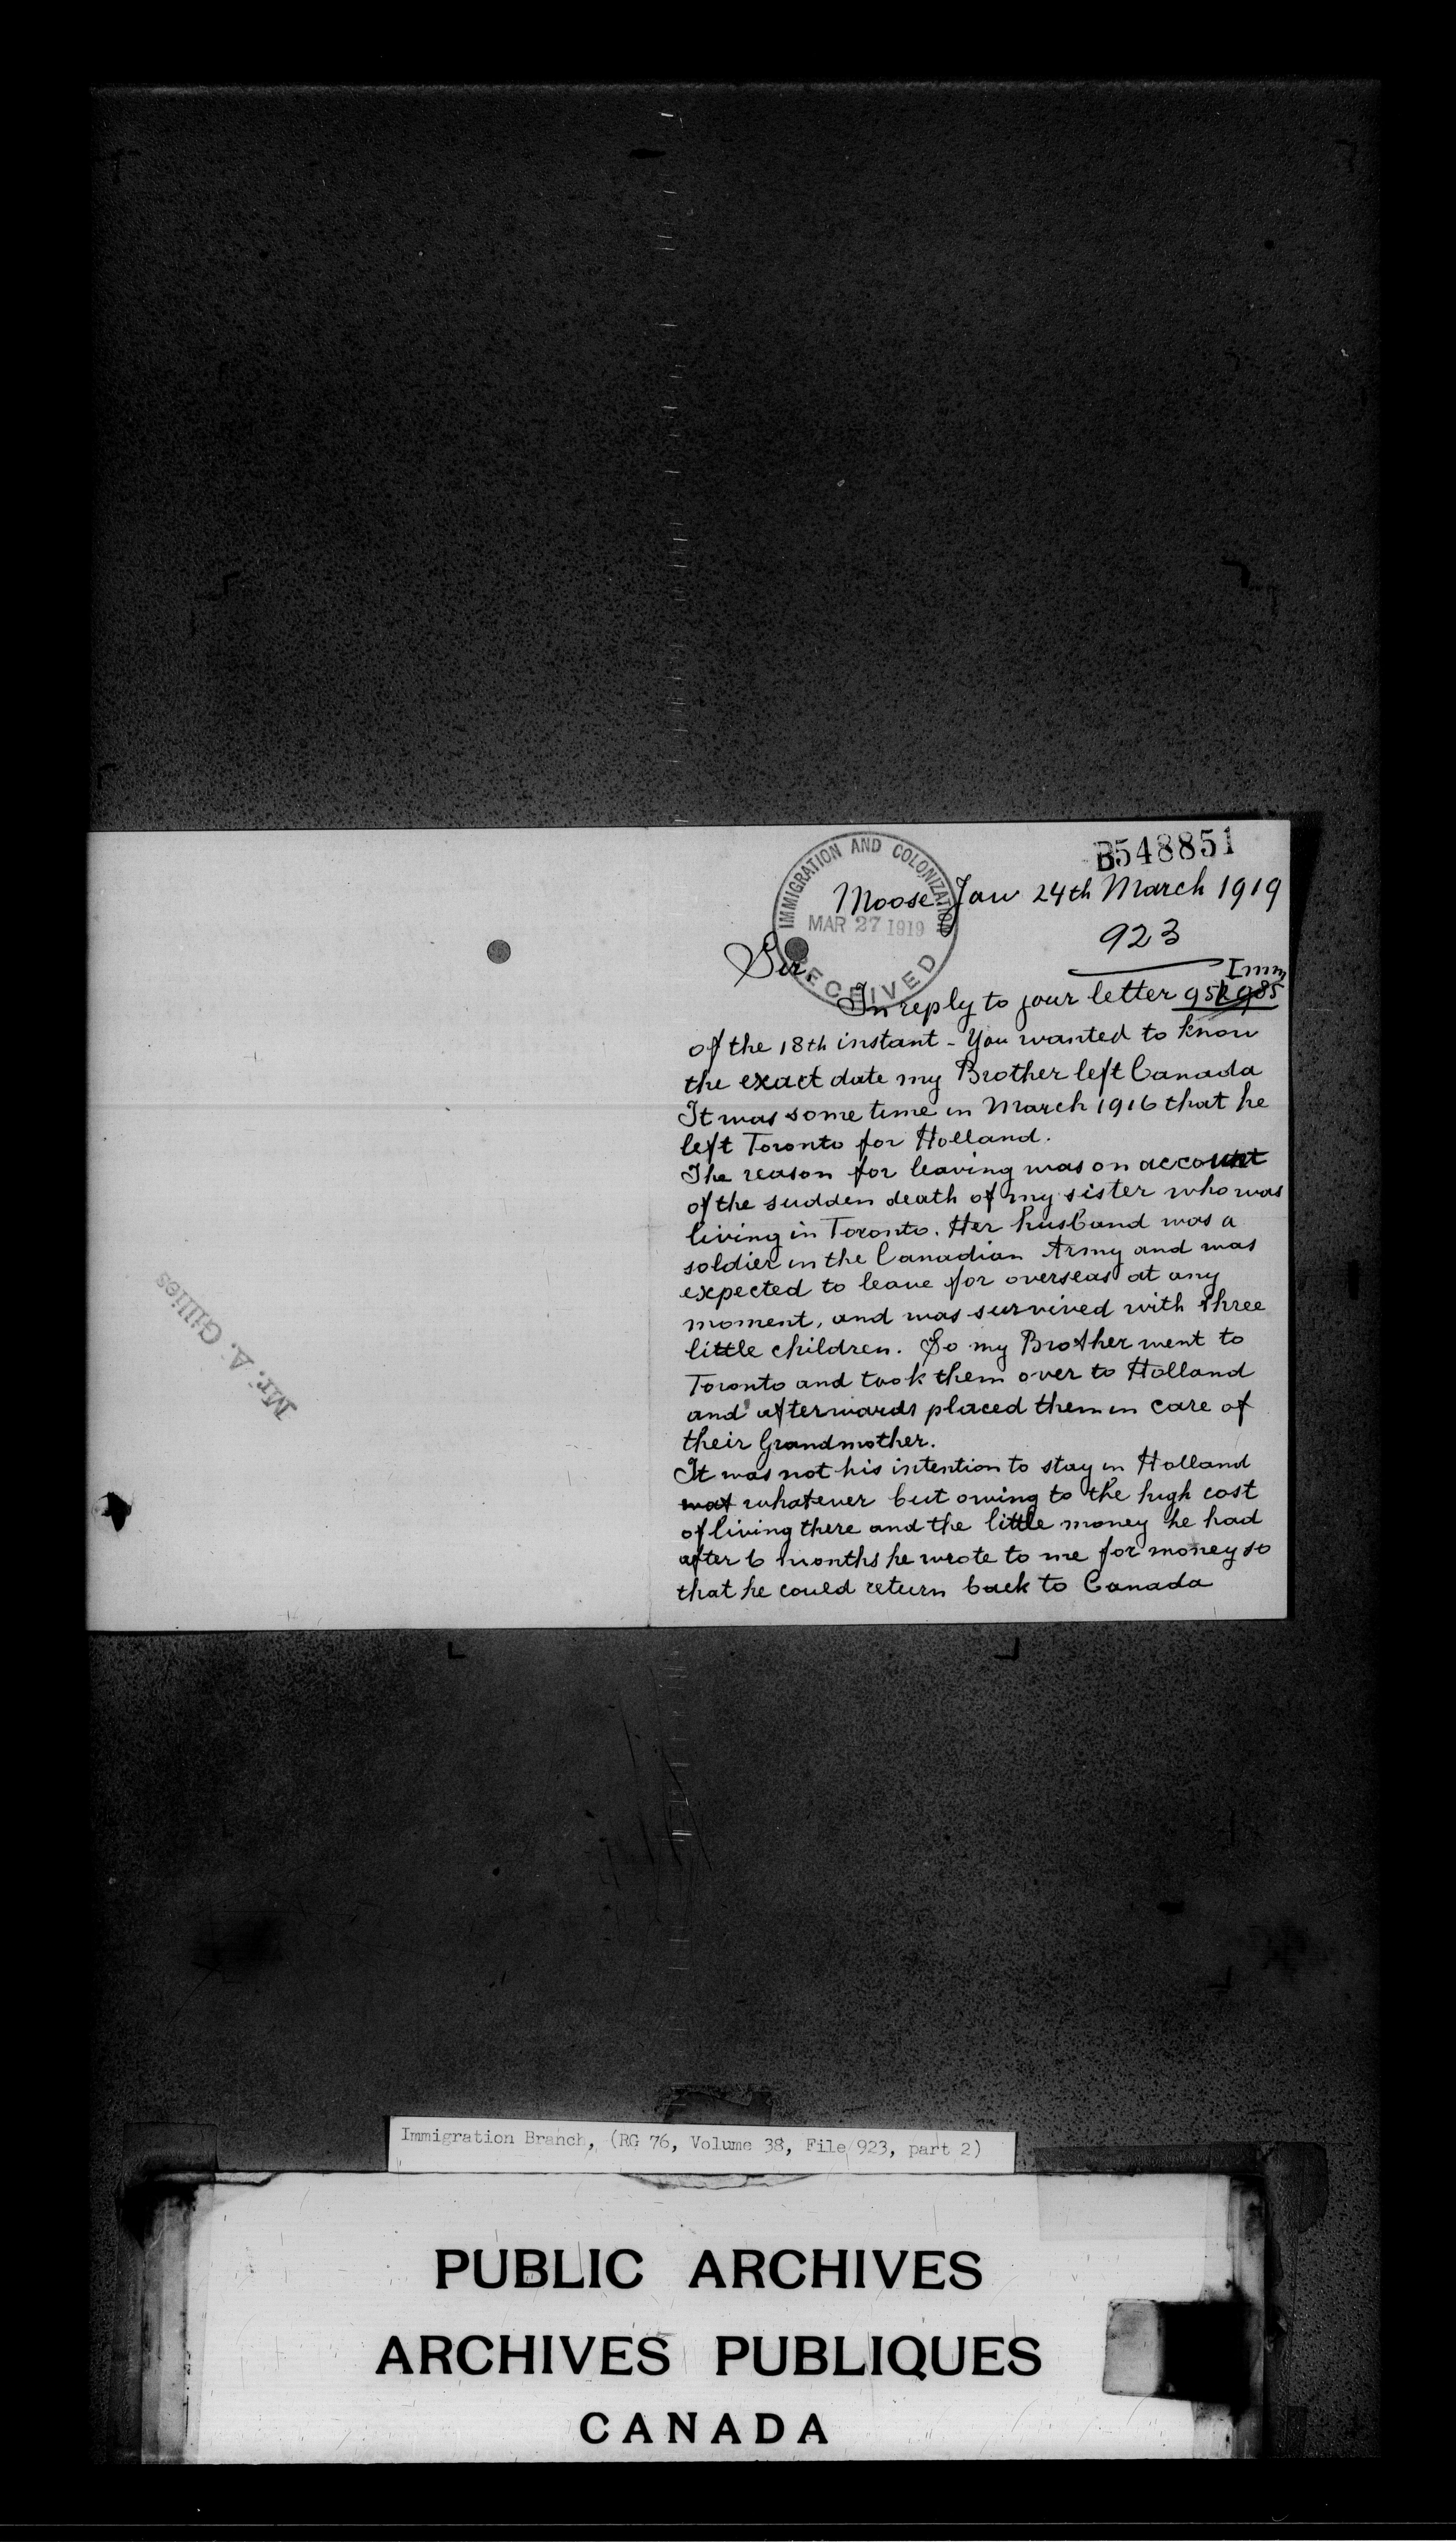 B548851
IMMIGRATION AND COLONIZATION
MAR 27 1919
RECEIVED
Moose Jaw 24th March 1919
923
Sir.
Imm
In reply to your letter 951 985
of the 18th instant - You wanted to know
the exact date my Brother left Canada
It was some time in March 1916 that he
left Toronto for Holland.
The reason for leaving was on account
of the sudden death of my sister who was
living in Toronto. Her husband was a
soldier in the Canadian Army and was
expected to leave for overseas at any
moment, and was survived with three
little children. So my Brother went to
Toronto and took them over to Holland
and afterwards placed them in care of
their Grandmother.
It was not his intention to stay in Holland
wat whatever but owing to the high cost
of living there and the little money he had
after 6 months he wrote to me for money so
that he could return back to Canada
Mr. A. Gillies
Immigration Branch, (RG 76, Volume 38, File 923, part 2)
PUBLIC ARCHIVES
ARCHIVES PUBLIQUES
CANADA